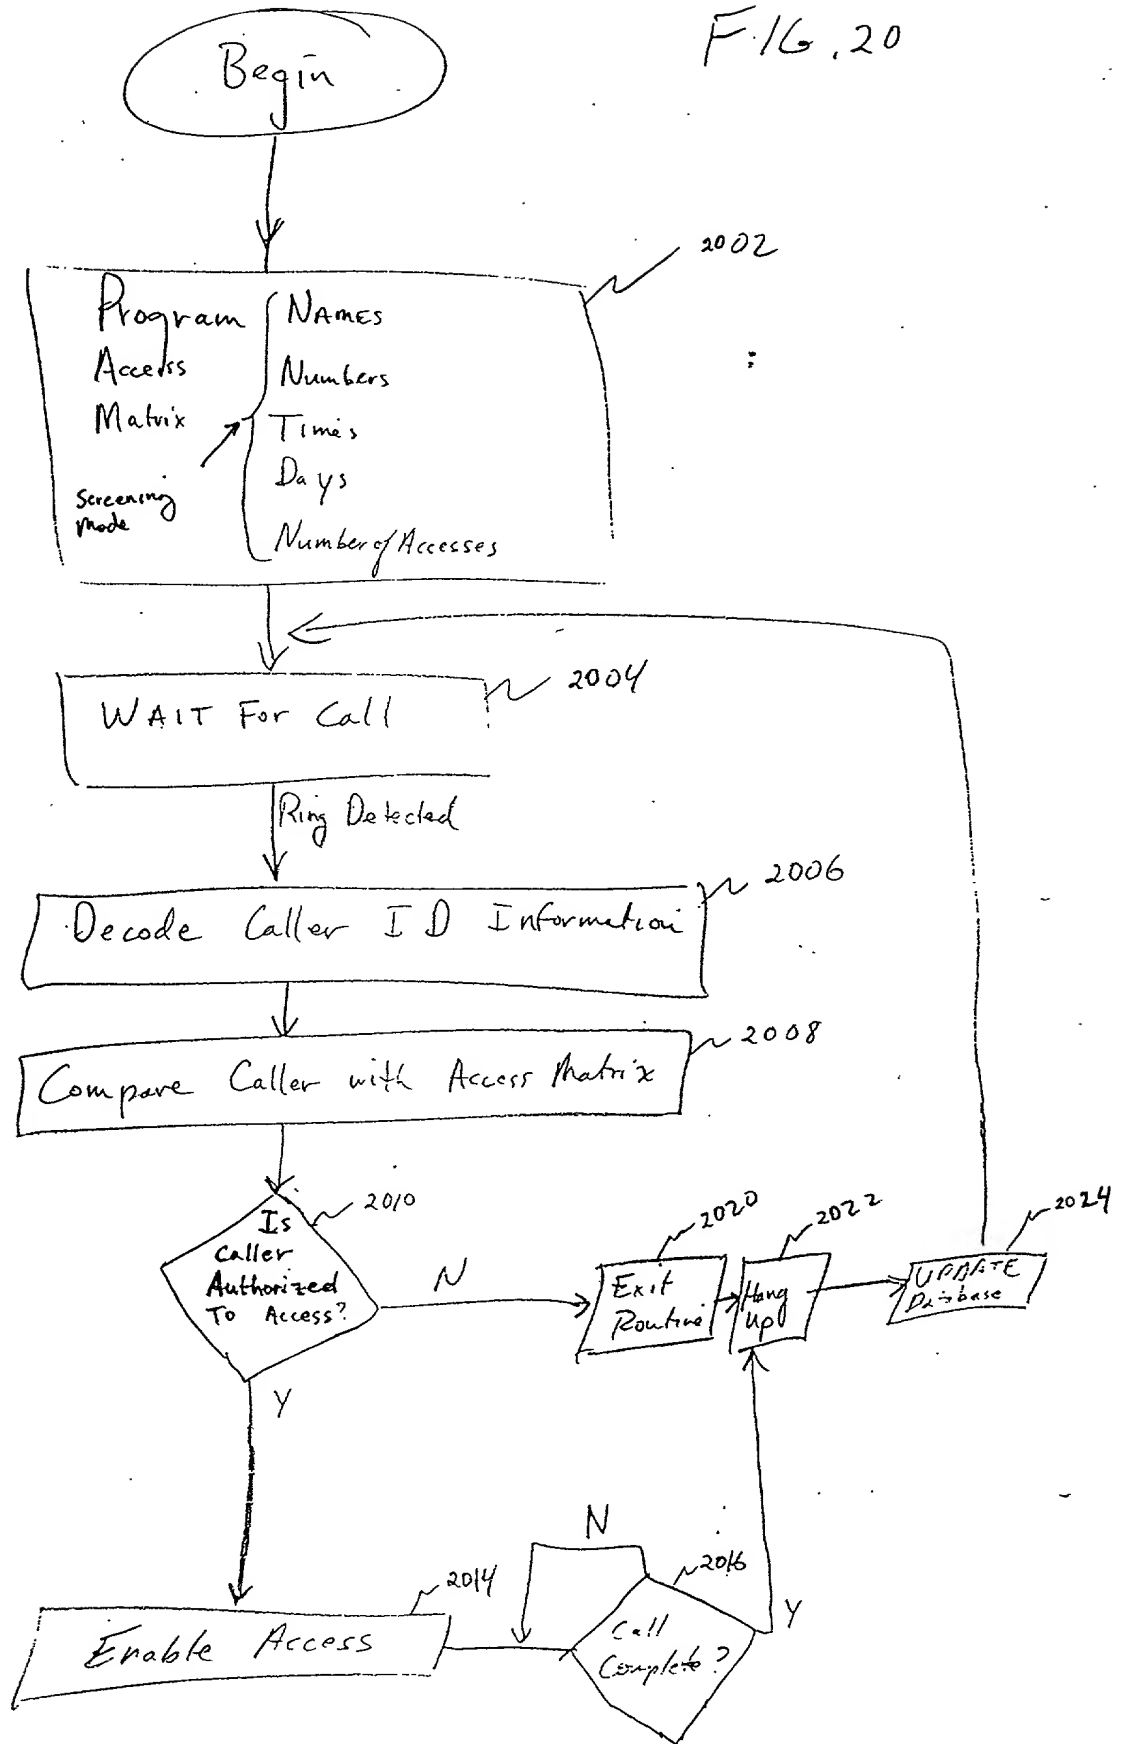 FIG.20
Begin
2002
Program
Access
Matrix
Screening
Mode
NAMES
Numbers
Times
Days
Number of Accesses
2004
WAIT For Call
Ring Detected
2006
Decode Caller ID Information
2008
Compare Caller with Access Matrix
2010
Is
Caller
Authorized
To Access?
N
Y
2020
Exit
Routine
2022
Hang
Up
2024
UPDATE
Database
N
2014
Enable Access
2016
Call
Complete?
Y